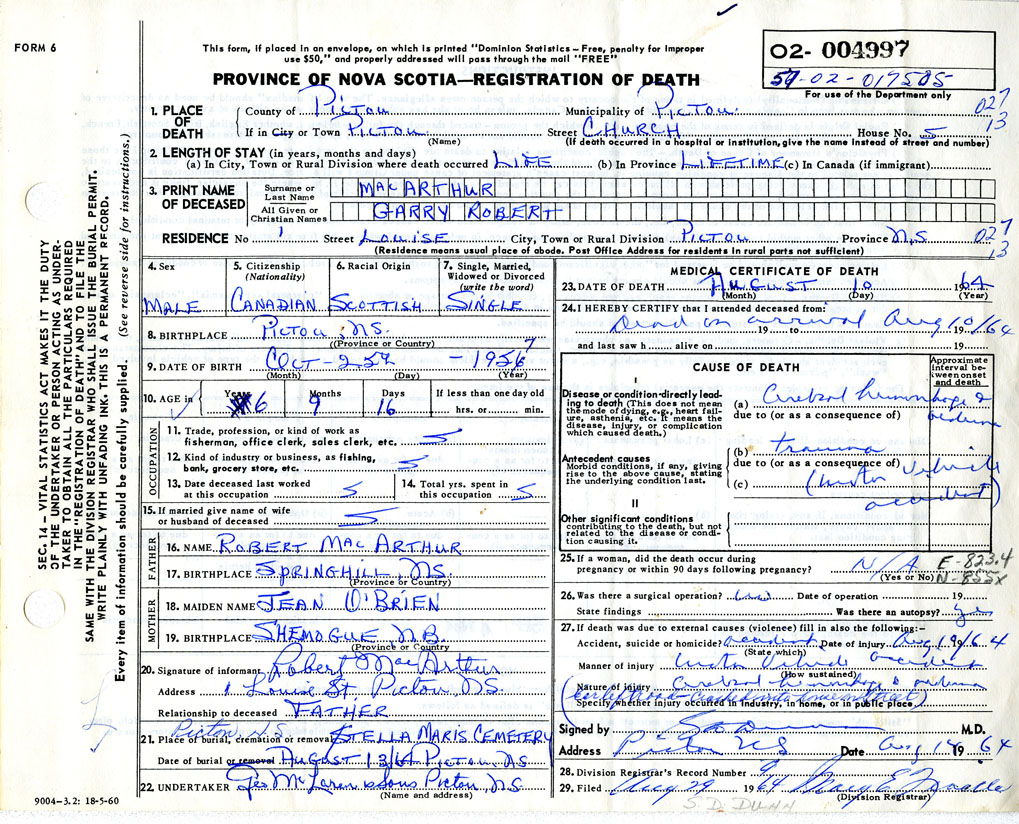 FORM 6
This form, if placed in an envelope, on which is printed "Dominion Statistics – Free, penalty for improper
use $50," and properly addressed will pass through the mail "FREE"
PROVINCE OF NOVA SCOTIA—REGISTRATION OF DEATH
02- 004997
59-02-017505
For use of the Department only
027
13
1. PLACE OF DEATH
County of Pictou Municipality of Pictou
If in City or Town Pictou Street CHURCH House No. 5
(Name) (If death occurred in a hospital or institution, give the name instead of street and number)
2. LENGTH OF STAY (in years, months and days)
(a) In City, Town or Rural Division where death occurred LIFE (b) In Province LIFETIME (c) In Canada (if immigrant)
3. PRINT NAME OF DECEASED
Surname or Last Name MacARTHUR
All Given or Christian Names GARRY ROBERT
RESIDENCE No 1 Street LOUISE City, Town or Rural Division PICTOU Province N.S
027
13
(Residence means usual place of abode. Post Office Address for residents in rural parts not sufficient)
4. Sex MALE
5. Citizenship (Nationality) CANADIAN
6. Racial Origin SCOTTISH
7. Single, Married, Widowed or Divorced (write the word) SINGLE
8. BIRTHPLACE PICTOU, N.S.
(Province or Country)
9. DATE OF BIRTH OCT - 25th - 1957
(Month) (Day) (Year)
10. AGE in Years 6 Months 9 Days 16 If less than one day old hrs. or min.
OCCUPATION
11. Trade, profession, or kind of work as
fisherman, office clerk, sales clerk, etc.
12. Kind of industry or business, as fishing,
bank, grocery store, etc.
13. Date deceased last worked
at this occupation
14. Total yrs. spent in
this occupation
15. If married give name of wife
or husband of deceased
FATHER
16. NAME ROBERT MacARTHUR
17. BIRTHPLACE SPRINGHILL, N.S.
(Province or Country)
MOTHER
18. MAIDEN NAME JEAN O'BRIEN
19. BIRTHPLACE SHEMOGUE N.B.
(Province or Country)
20. Signature of informant Robert MacArthur
Address 1 Louise St. Pictou, N.S.
Relationship to deceased FATHER
Pictou, N.S
21. Place of burial, cremation or removal STELLA MARIS CEMETERY
Date of burial or removal AUGUST 13/64 PICTOU, N.S
22. UNDERTAKER Geo McLaren & Sons Pictou, N.S.
(Name and address)
9004-3.2: 18-5-60
MEDICAL CERTIFICATE OF DEATH
23. DATE OF DEATH AUGUST 10 1964
(Month) (Day) (Year)
24. I HEREBY CERTIFY that I attended deceased from:
Dead on arrival Aug 10/64
19 to 19
and last saw h alive on 19
CAUSE OF DEATH
Approximate interval between onset and death
I
Disease or condition directly leading to death (This does not mean the mode of dying, e.g., heart failure, asthenia, etc. It means the disease, injury, or complication which caused death.)
(a) Cerebral hemorrhage & oedema
due to (or as a consequence of)
Antecedent causes
Morbid conditions, if any, giving rise to the above cause, stating the underlying condition last.
(b) trauma
due to (or as a consequence of)
(c) (motor vehicle accident)
II
Other significant conditions
contributing to the death, but not related to the disease or condition causing it.
25. If a woman, did the death occur during
pregnancy or within 90 days following pregnancy? N/A
(Yes or No)
E-823.4
26. Was there a surgical operation? Date of operation 19
State findings Was there an autopsy? yes
27. If death was due to external causes (violence) fill in also the following:—
Accident, suicide or homicide? accident Date of injury Aug 1964
(State which)
Manner of injury Motor Vehicle accident
(How sustained)
Nature of injury Cerebral hemorrhage & oedema
Specify whether injury occurred in industry, in home, or in public place
Signed by M.D.
Address Pictou NS Date Aug 1964
28. Division Registrar's Record Number 9
29. Filed Aug 29 1964 Mary E
(Division Registrar)
S.D. DUNN
SEC. 14 – VITAL STATISTICS ACT MAKES IT THE DUTY
OF THE UNDERTAKER OR PERSON ACTING AS UNDER-
TAKER TO OBTAIN ALL THE PARTICULARS REQUIRED
IN THE "REGISTRATION OF DEATH" AND TO FILE THE
SAME WITH THE DIVISION REGISTRAR WHO SHALL ISSUE THE BURIAL PERMIT.
WRITE PLAINLY WITH UNFADING INK. THIS IS A PERMANENT RECORD.
Every item of information should be carefully supplied. (See reverse side for instructions.)